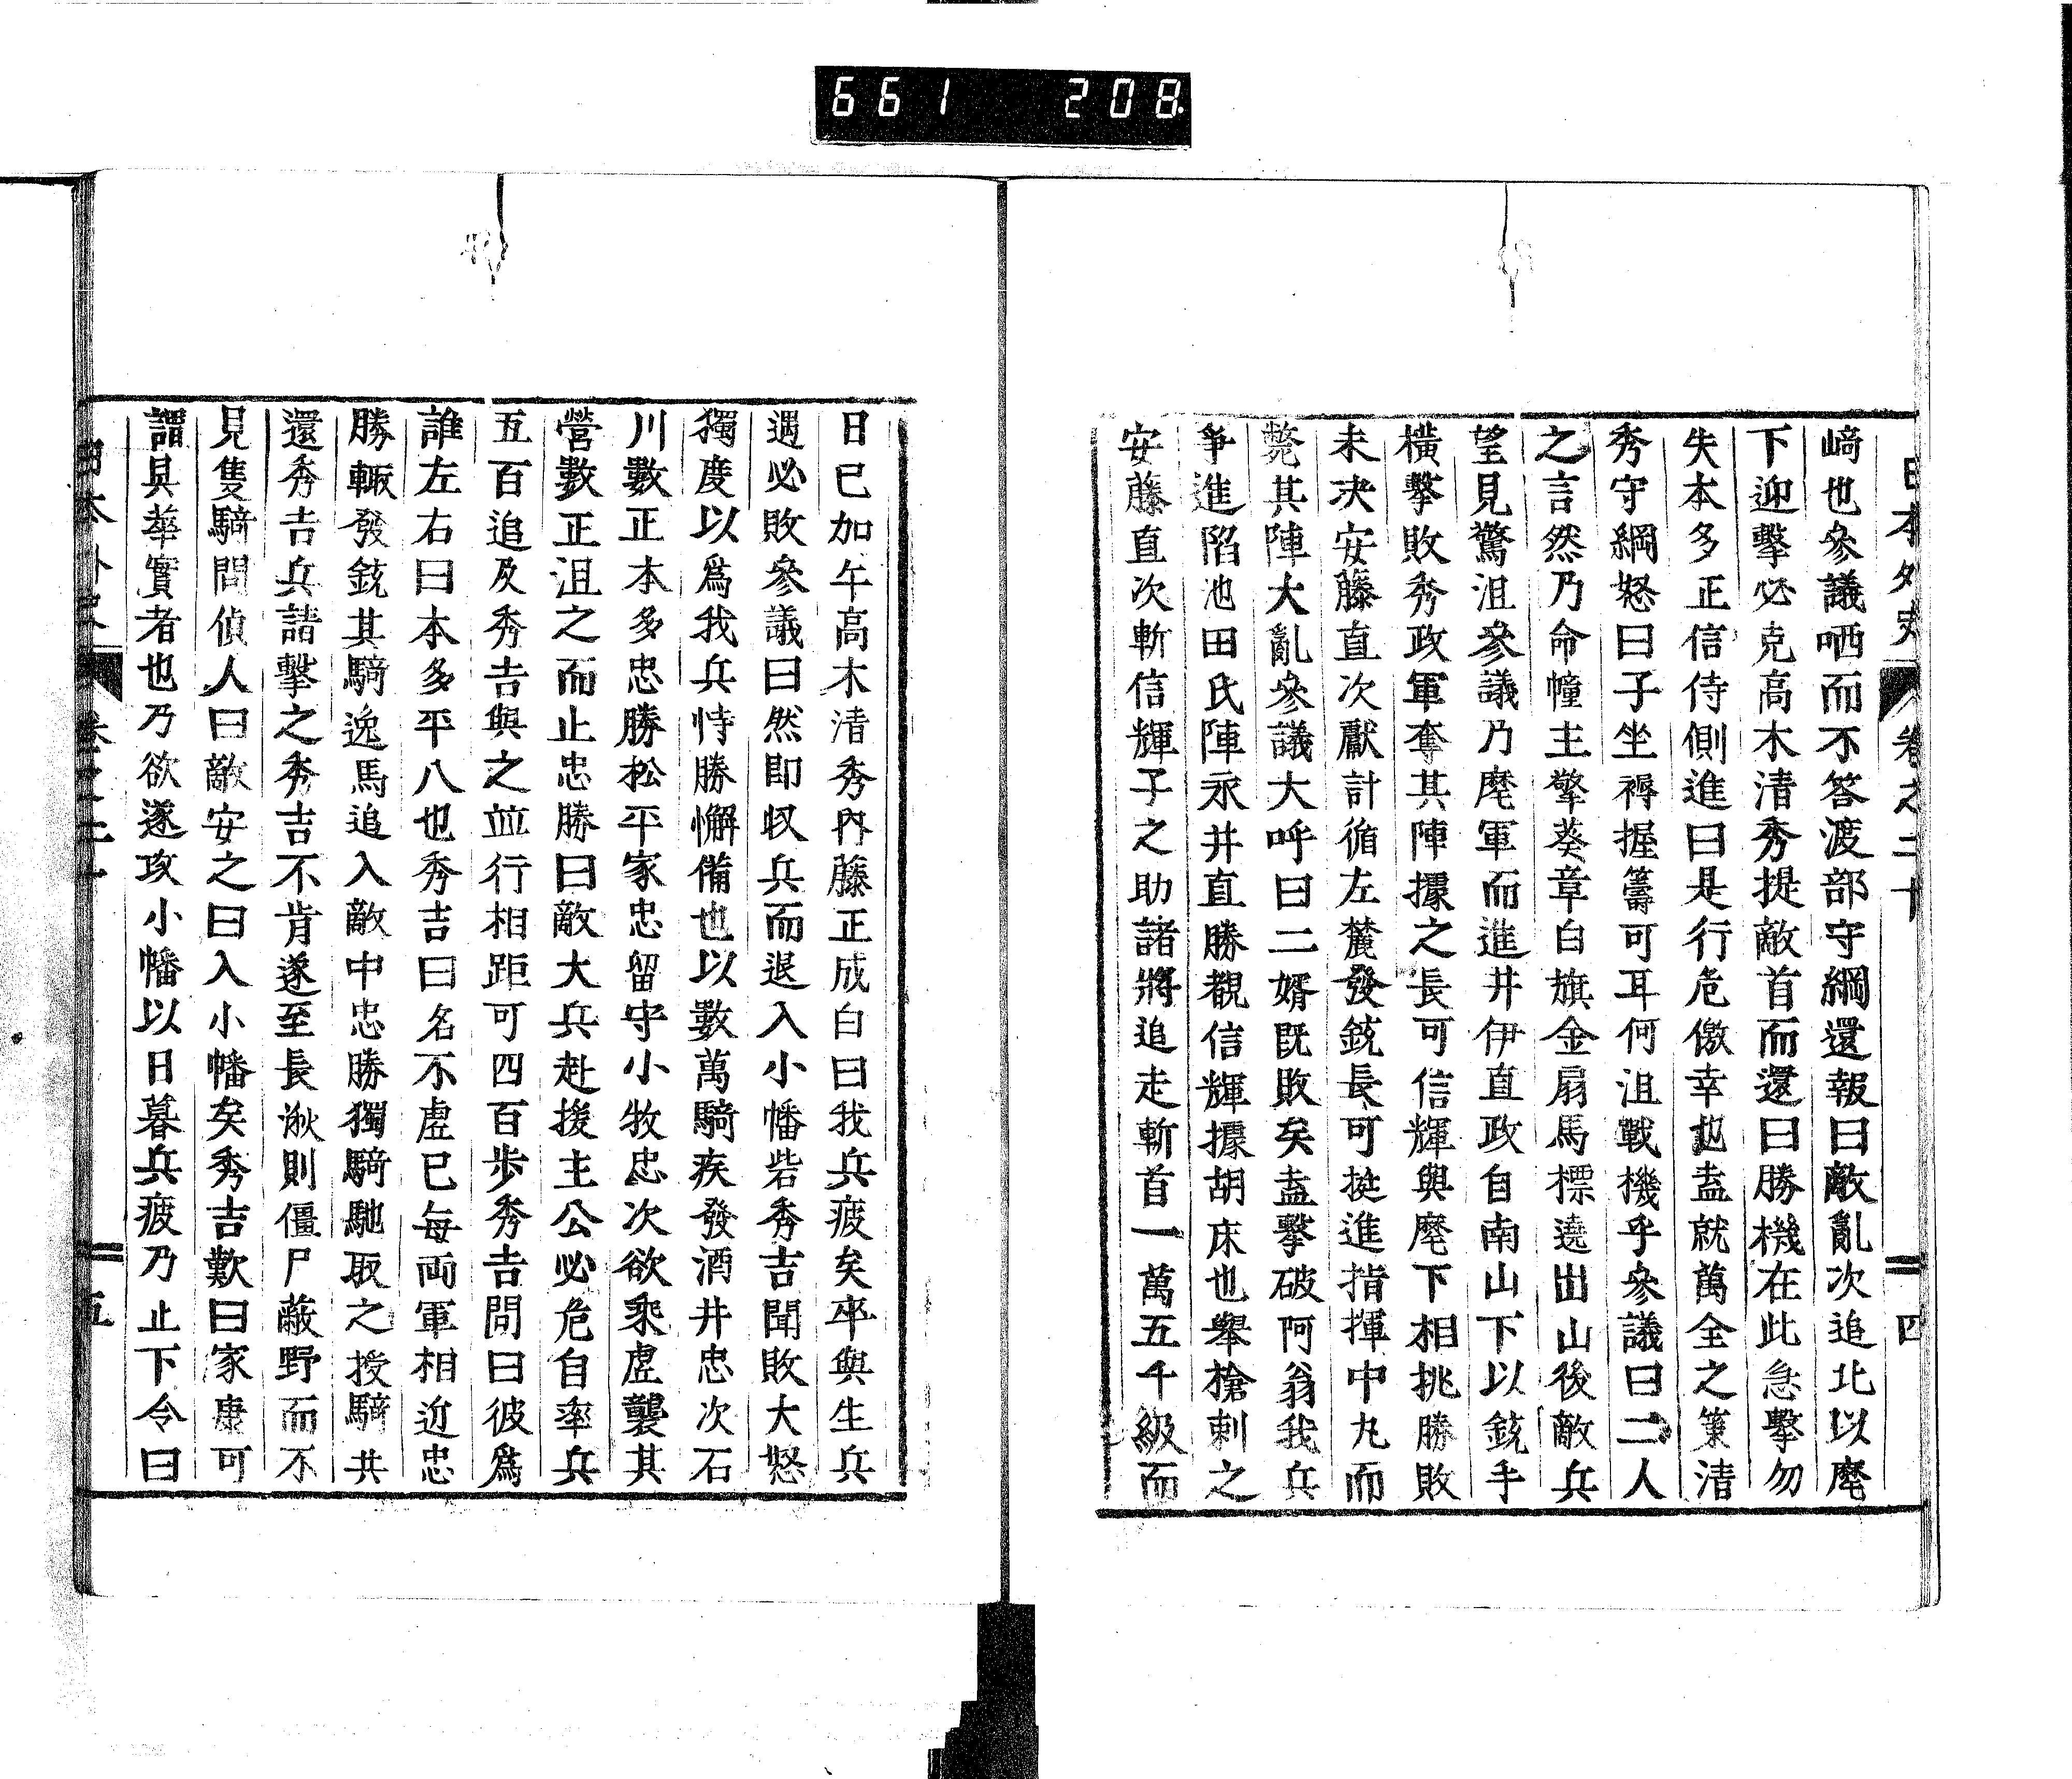 661 208
日本外史 卷之二十 四
﨑也參議哂而不答渡部守綱還報曰敵亂次追北以麾
下迎擊必克高木清秀提敵首而還曰勝機在此急擊勿
失本多正信侍側進曰是行危儌幸也盍就萬全之策清
秀守綱怒曰子坐褥握籌可耳何沮戰機乎參議曰二人
之言然乃命幢主擎葵章白旗金扇馬標遶出山後敵兵
望見驚沮參議乃麾軍而進井伊直政自南山下以銃手
橫擊敗秀政軍奪其陣據之長可信輝與麾下相挑勝敗
未决安藤直次獻計循左麓發銃長可挺進指揮中丸而
斃其陣大亂參議大呼曰二婿既敗矣盍擊破阿翁我兵
爭進陷池田氏陣永井直勝覩信輝據胡床也舉槍刺之
安藤直次斬信輝子之助諸將追走斬首一萬五千級而
日已加午高木清秀內藤正成白曰我兵疲矣卒與生兵
遇必敗參議曰然即収兵而退入小幡砦秀吉聞敗大怒
獨度以爲我兵恃勝懈備也以數萬騎疾發酒井忠次石
川數正本多忠勝松平家忠留守小牧忠次欲乘虛襲其
營數正沮之而止忠勝曰敵大兵赴援主公必危自率兵
五百追及秀吉與之竝行相距可四百步秀吉問曰彼爲
誰左右曰本多平八也秀吉曰名不虛已每兩軍相近忠
勝輙發銃其騎逸馬追入敵中忠勝獨騎馳取之授騎共
還秀吉兵請擊之秀吉不肯遂至長湫則僵尸蔽野而不
見隻騎問偵人曰敵安之曰入小幡矣秀吉歎曰家康可
謂具華實者也乃欲遂攻小幡以日暮兵疲乃止下令曰
日本外史 卷之二十 五